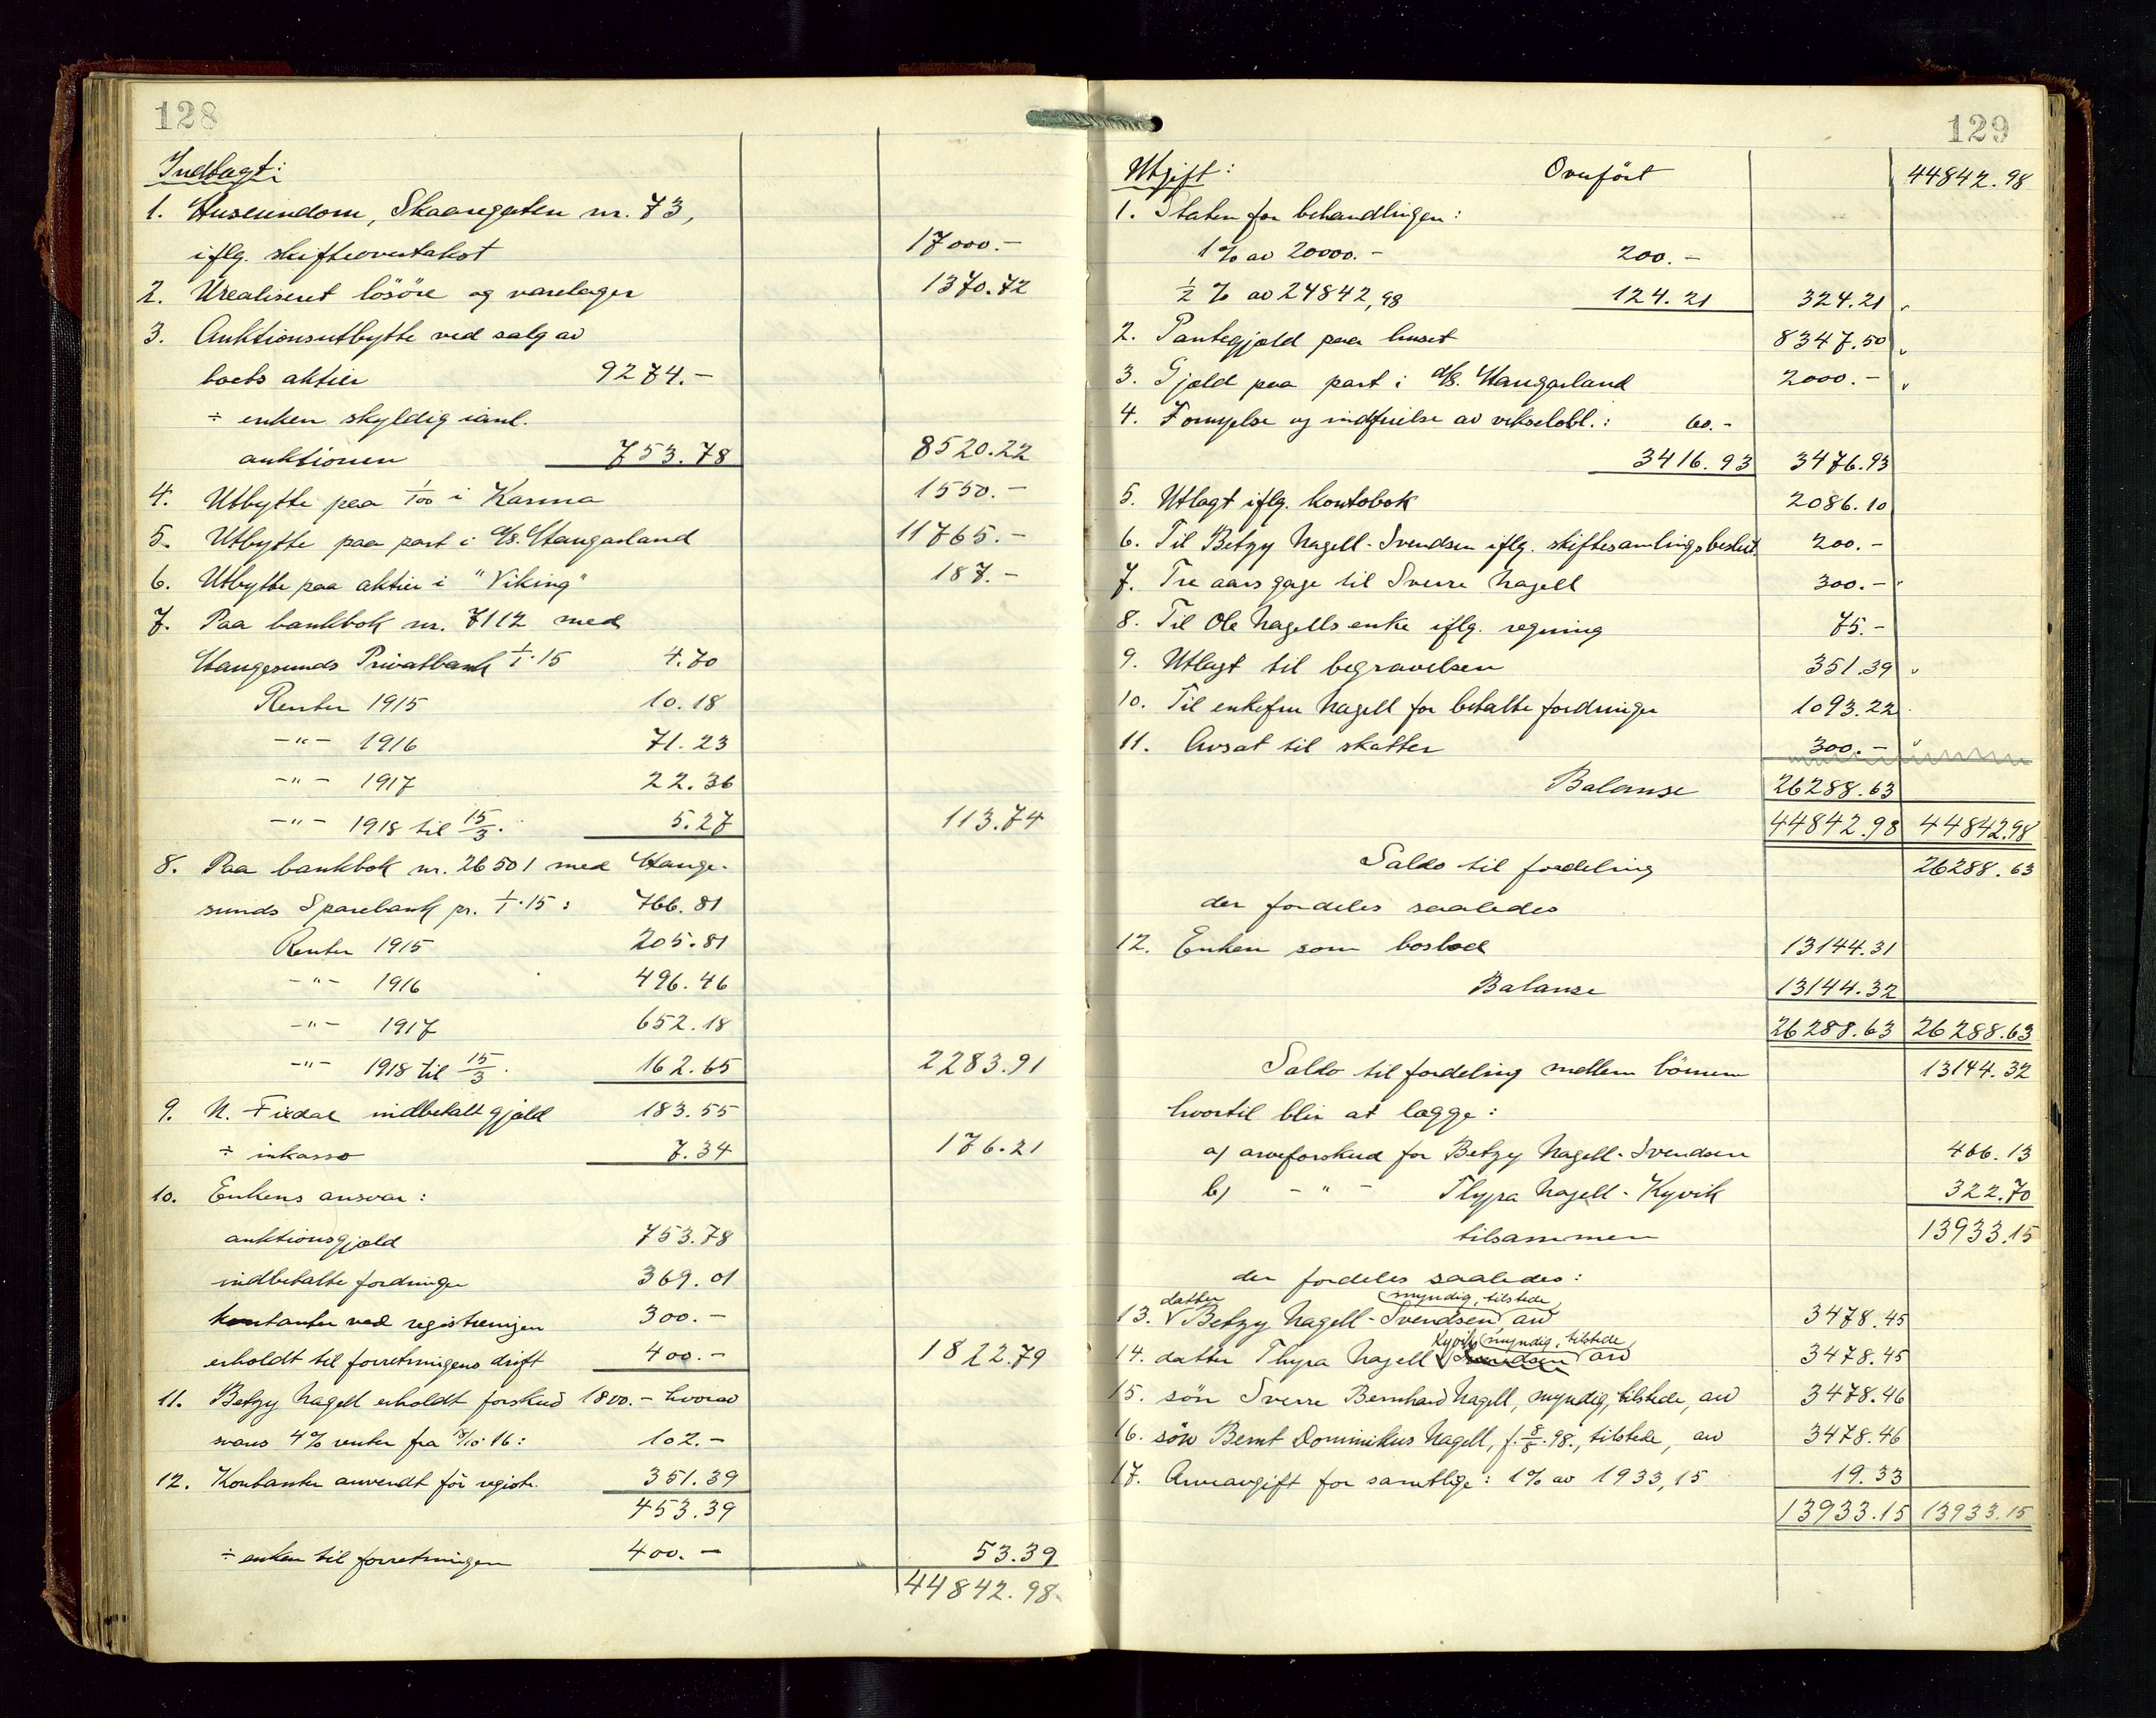 128
Indtægt:
1. Huseiendom, Skaaregaten nr. 73,
iflg. skifteovertakst 17000.-
2. Urealiseret lösöre og varelager 1370.72
3. Auktionsutbytte ved salg av
boets aktier 9274.-
÷ enken skyldig ianl.
auktionen 753.78 8520.22
4. Utbytte paa 1/100 i Karma 1550.-
5. Utbytte paa part i d/s. Haugarland 11765.-
6. Utbytte paa aktier i "Viking" 187.-
7. Paa bankbok nr. 7112 med
Haugesunds Privatbank 1/1.15 4.70
Renter 1915 10.18
-"- 1916 71.23
-"- 1917 22.36
-"- 1918 til 15/3. 5.27 113.74
8. Paa bankbok nr. 26501 med Hauge-
sunds Sparebank pr. 1/1.15: 766.81
Renter 1915 205.81
-"- 1916 496.46
-"- 1917 652.18
-"- 1918 til 15/3. 162.65 2283.91
9. N. indbetalt gjæld 183.55
÷ inkasso 7.34 176.21
10. Enkens ansvar:
auktionsgjæld 753.78
indbetalte fordringer 369.01
kontanter ved registreringen 300.-
erholdt til forretningens drift 400.- 1822.79
11. Betzy Nagell erholdt forskud 1800.- hvorav
svares 4% renter fra 18/10.16: 102.-
12. Kontanter anvendt för registr. 351.39
453.39
÷ enken til forretningen 400.- 53.39
44842.98
129
Utgift: Overfört 44842.98
1. Staten for behandlingen:
1% av 20000.- 200.-
1/2 % av 24842,98 124.21 324.21
2. Pantegjæld paa huset 8347.50
3. Gjæld paa part i d/s. Haugarland 2000.-
4. Fornyelse og indfrielse av vekselobl.: 60.-
3416.93 3476.93
5. Utlagt iflg. kontobok 2086.10
6. Til Betzy Nagell-Svendsen iflg. skiftesamlingsbeslut. 200.-
7. Tre aars gage til Sverre Nagell 300.-
8. Til Ole Nagells enke iflg. regning 75.-
9. Utlagt til begravelsen 351.39
10. Til enkefru Nagell for betalte fordringer 1093.22
11. Avsat til skatter 300.-
Balanse 26288.63
44842.98 44842.98
Saldo til fordeling 26288.63
der fordeles saaledes
12. Enken som boslod 13144.31
Balanse 13144.32
26288.63 26288.63
Saldo til fordeling mellem börnene 13144.32
hvortil blir at lægge:
a) arveforskud for Betzy Nagell-Svendsen 466.13
b) -"- Thyra Nagell-Kyvik 322.70
tilsammen 13933.15
der fordeles saaledes:
datter myndig, tilstede,
13. Betzy Nagell-Svendsen arv 3478.45
Kyvik myndig, tilstede,
14. datter Thyra Nagell Svendsen arv 3478.45
15. sön Sverre Bernhard Nagell, myndig, tilstede, arv 3478.46
16. sön Bernt Dominikus Nagell, f. 8/8.98., tilstede, arv 3478.46
17. Arveavgift for samtlige: 1% av 1933,15 19.33
13933.15 13933.15